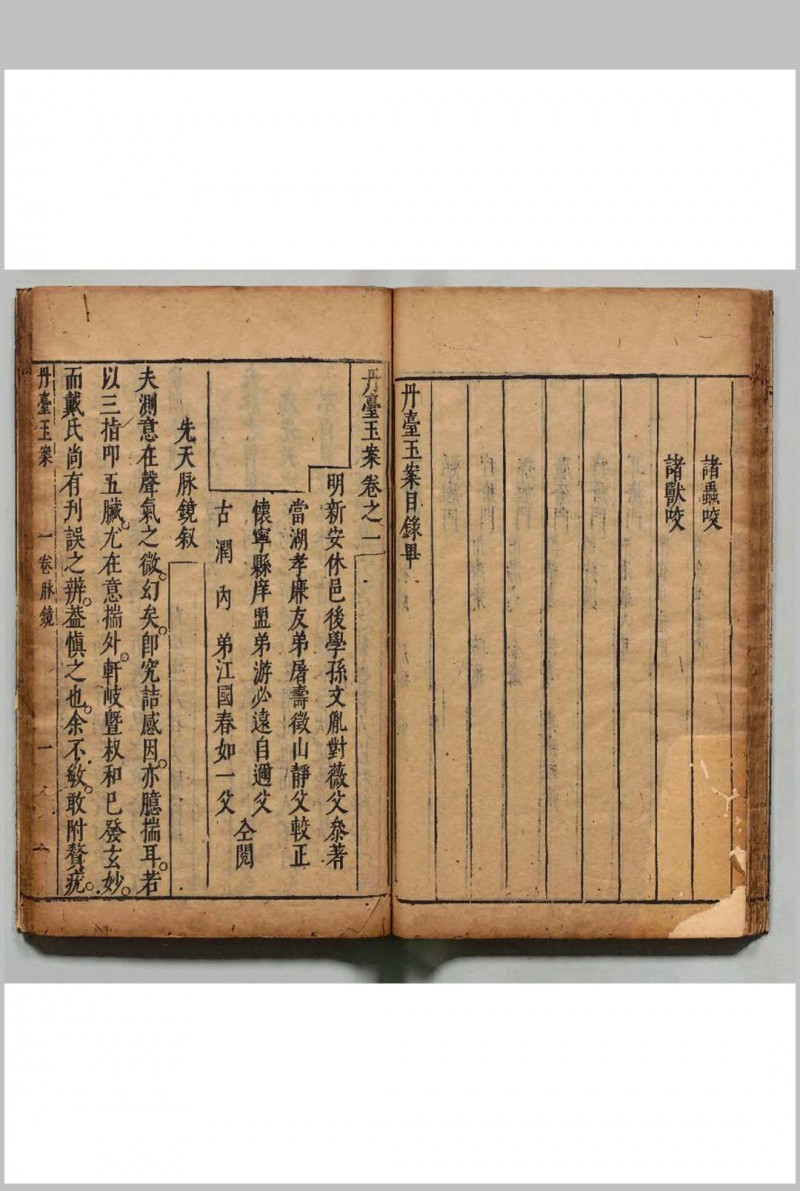 諸蟲咬
諸獸咬
丹臺玉案目錄畢
丹臺玉案卷之一
明新安休邑後學孫文胤對薇父叅著
當湖孝廉友弟屠壽徵山靜父較正
懷寧縣庠盟弟游必遠自邇父
仝閱
古潤內弟江國春如一父
先天脉鏡叙
夫測意在聲氣之微。幻矣。卽究詰感因。亦臆揣耳。若
以三指叩五臟。尤在意揣外。軒岐曁叔和已發玄妙。
而戴氏尚有刋誤之辨。葢愼之也。余不敏。敢附贅疣。
丹臺玉案 一卷脉鏡 一